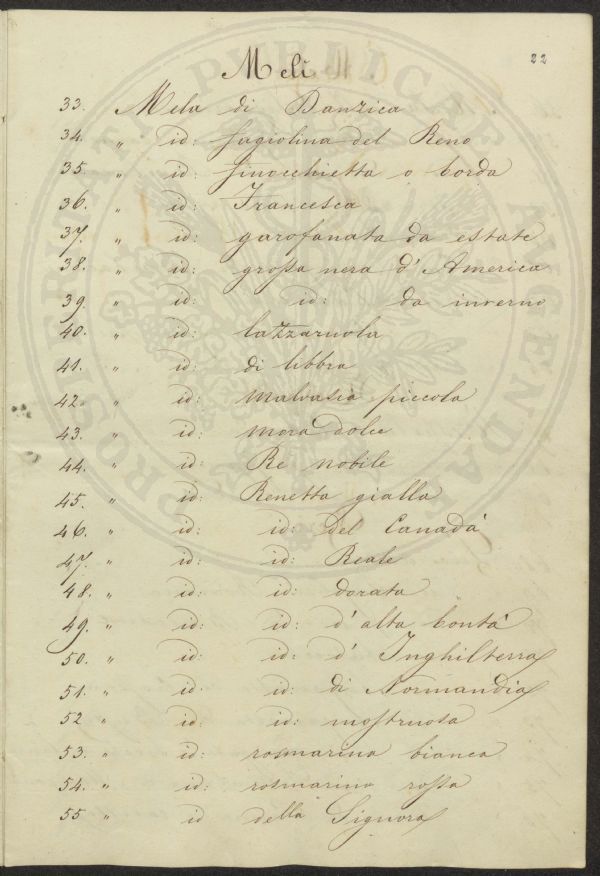 22
Meli
33. Mela di Danzica
34. " id: fugiolina del Reno
35. " id: finocchietta o borda
36. " id: Francesca
37. " id: garofanata da estate
38. " id: grossa nera d'America
39. " id: id: da inverno
40. " id: lazzaruola
41. " id: di libbra
42. " id: malvasia piccola
43. " id: mora dolce
44. " id: Re nobile
45. " id: Renetta gialla
46. " id: id: del Canadà
47. " id: id: Reale
48. " id: id: dorata
49. " id: id: d'alta bontà
50. " id: id: d'Inghilterra
51. " id: id: di Normandia
52 " id: id: mostruosa
53. " id: rosmarino bianca
54. " id: rosmarino rossa
55 " id della Signora
PROSPERITATI PUBLICAE AUGENDAE